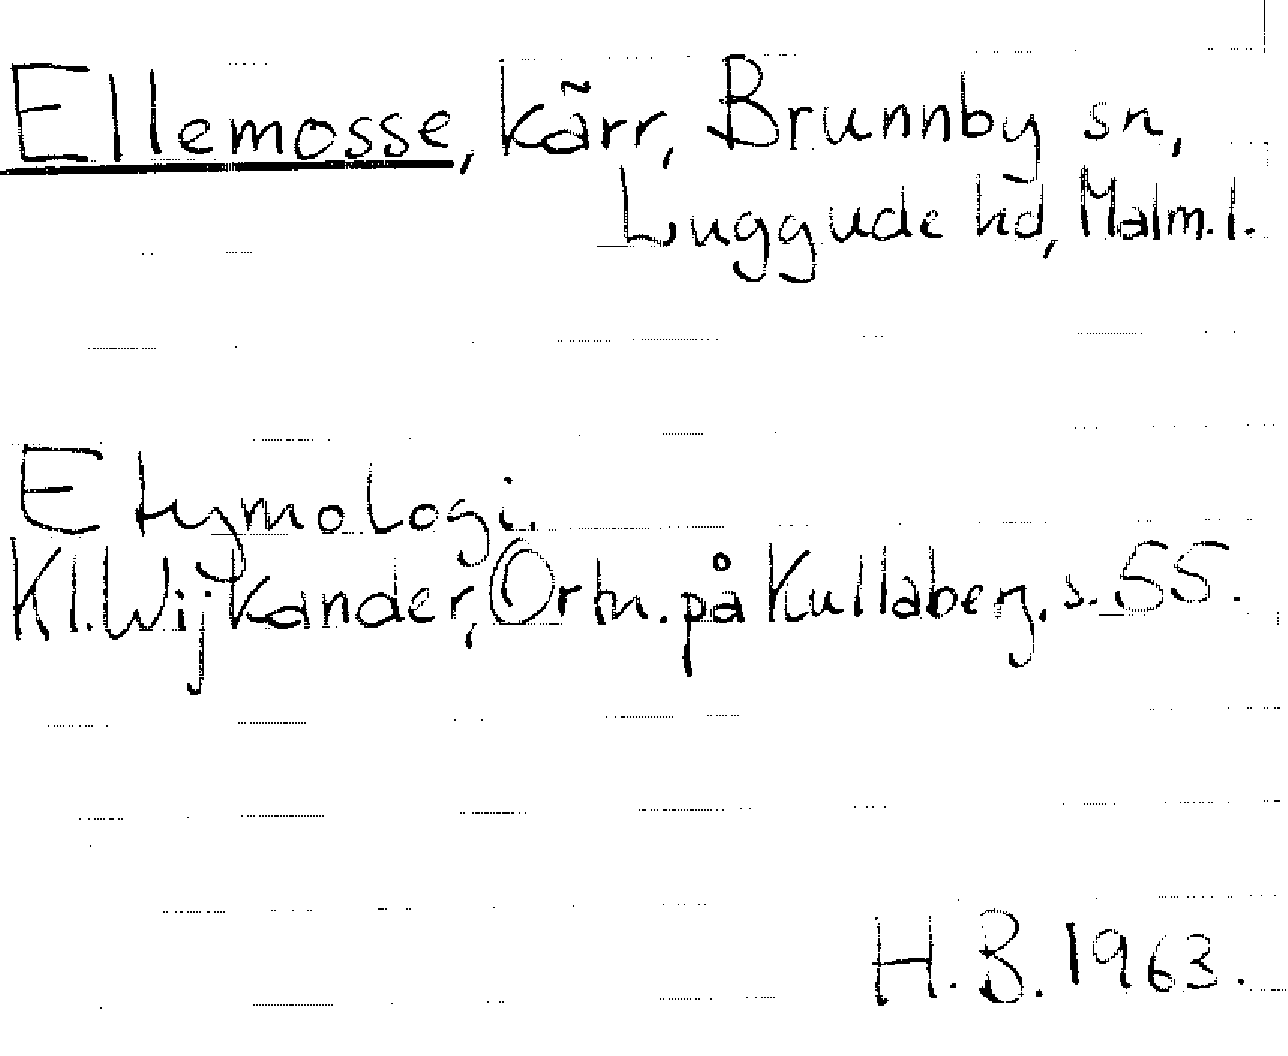 Ellemosse, kärr, Brunnby sn,
Luggude hd, Malm.l.
Etymologi.
Kl.Wijkander, Ortn. på Kullaberg. s. 55.
H.B. 1963.